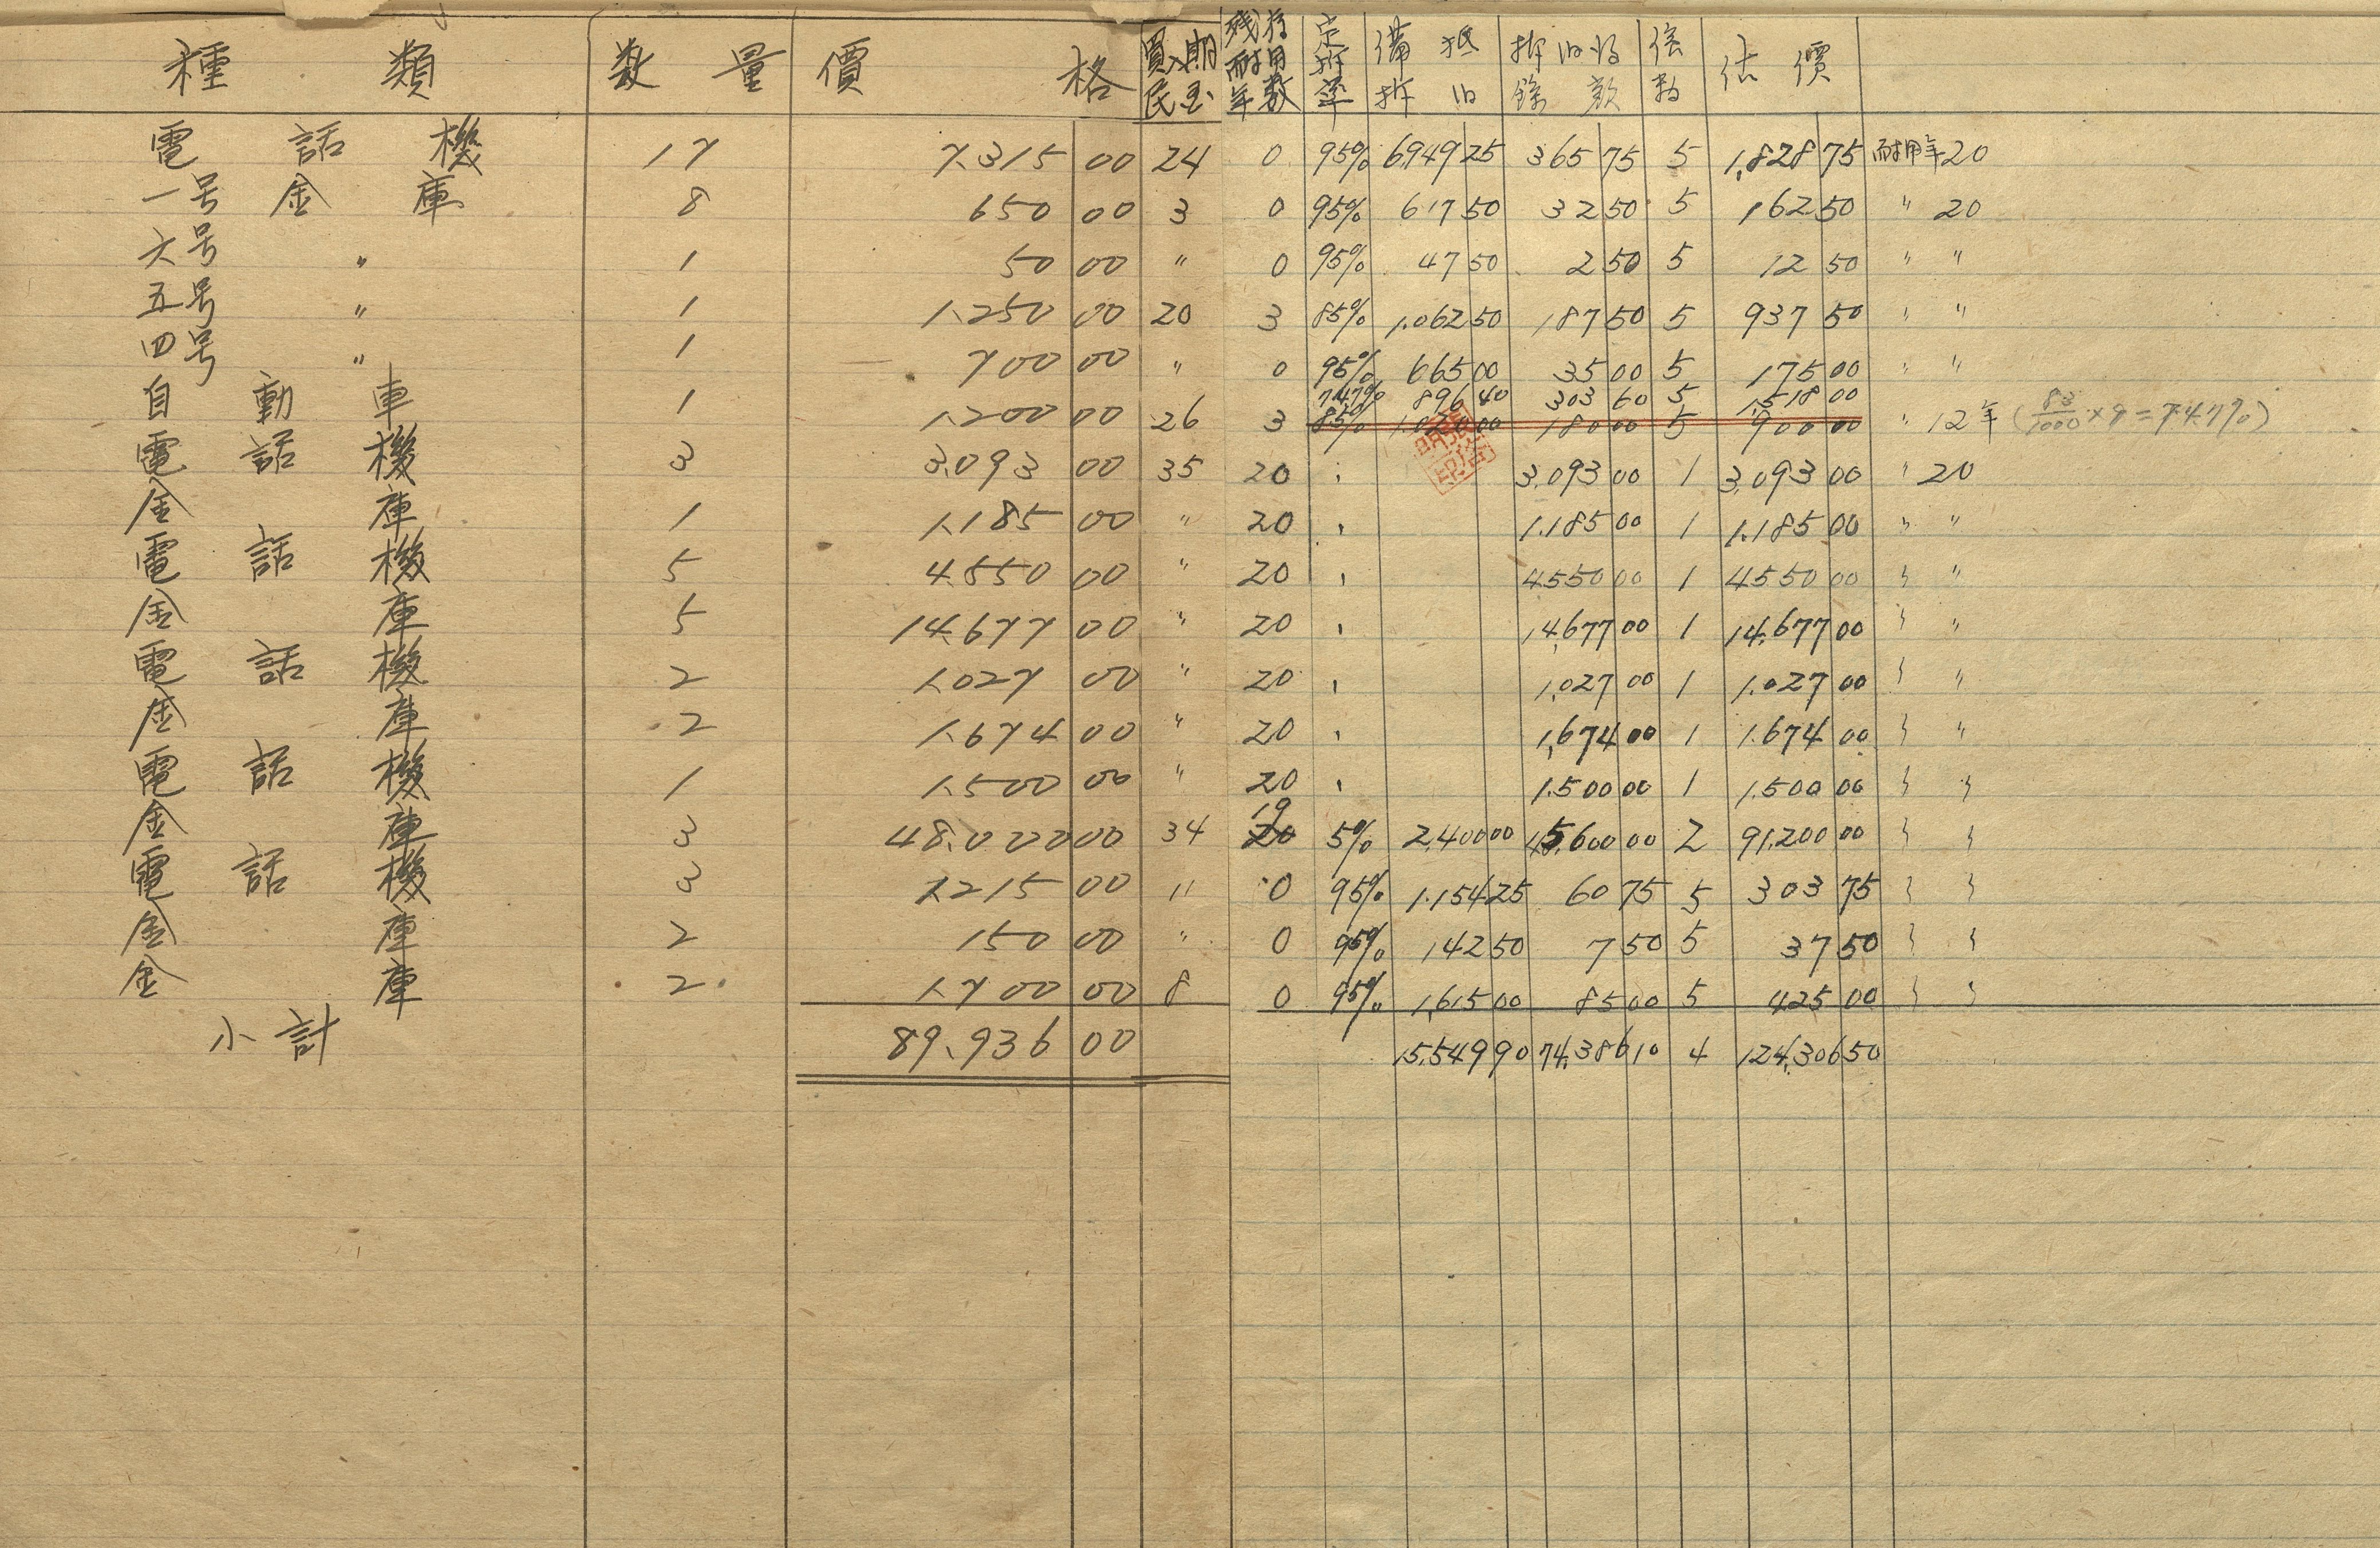 種類 数量 價格 買入期民國 残存耐用年數 定折率 備抵折旧 折旧后餘款 倍數 估價
電話機 17 7,315 00 24 0 95% 6949 25 365 75 5 1,828 75 耐用年20
一号金庫 8 650 00 3 0 95% 617 50 32 50 5 162 50 〃 20
六号 〃 1 50 00 〃 0 95% 47 50 2 50 5 12 50 〃 〃
五号 〃 1 1,250 00 20 3 85% 1.062 50 187 50 5 937 50 〃 〃
四号 〃 1 700 00 〃 0 95% 665 00 35 00 5 175 00 〃 〃
74.7% 896 40 303 60 5 1,518 00
自動車 1 1,200 00 26 3 85% 1.020 00 180 00 5 900 00 〃 12年 (83/1000×9=74.7%)
電話機 3 3,093 00 35 20 , 3,093 00 1 3,093 00 〃 20
金庫 1 1,185 00 〃 20 , 1.185 00 1 1.185 00 〃 〃
電話機 5 4,550 00 〃 20 , 4550 00 1 4550 00 〃 〃
金庫 5 14,677 00 〃 20 , 14,677 00 1 14,677 00 〃 〃
電話機 2 1,027 00 〃 20 , 1,027 00 1 1.027 00 〃 〃
金庫 2 1,674 00 〃 20 , 1,674 00 1 1.674 00 〃 〃
電話機 1 1,500 00 〃 20 , 1.500 00 1 1.500 00 〃 〃
金庫 3 48,000 00 34 20 19 5% 2,400 00 45,600 00 2 91,200 00 〃 〃
電話機 3 1,215 00 〃 0 95% 1.154 25 60 75 5 303 75 〃 〃
金庫 2 150 00 〃 0 95% 142 50 7 50 5 37 50 〃 〃
金庫 2 1,700 00 8 0 95% 1,615 00 85 00 5 425 00 〃 〃
小計 89,936 00 15,549 90 74,386 10 4 124,306 50